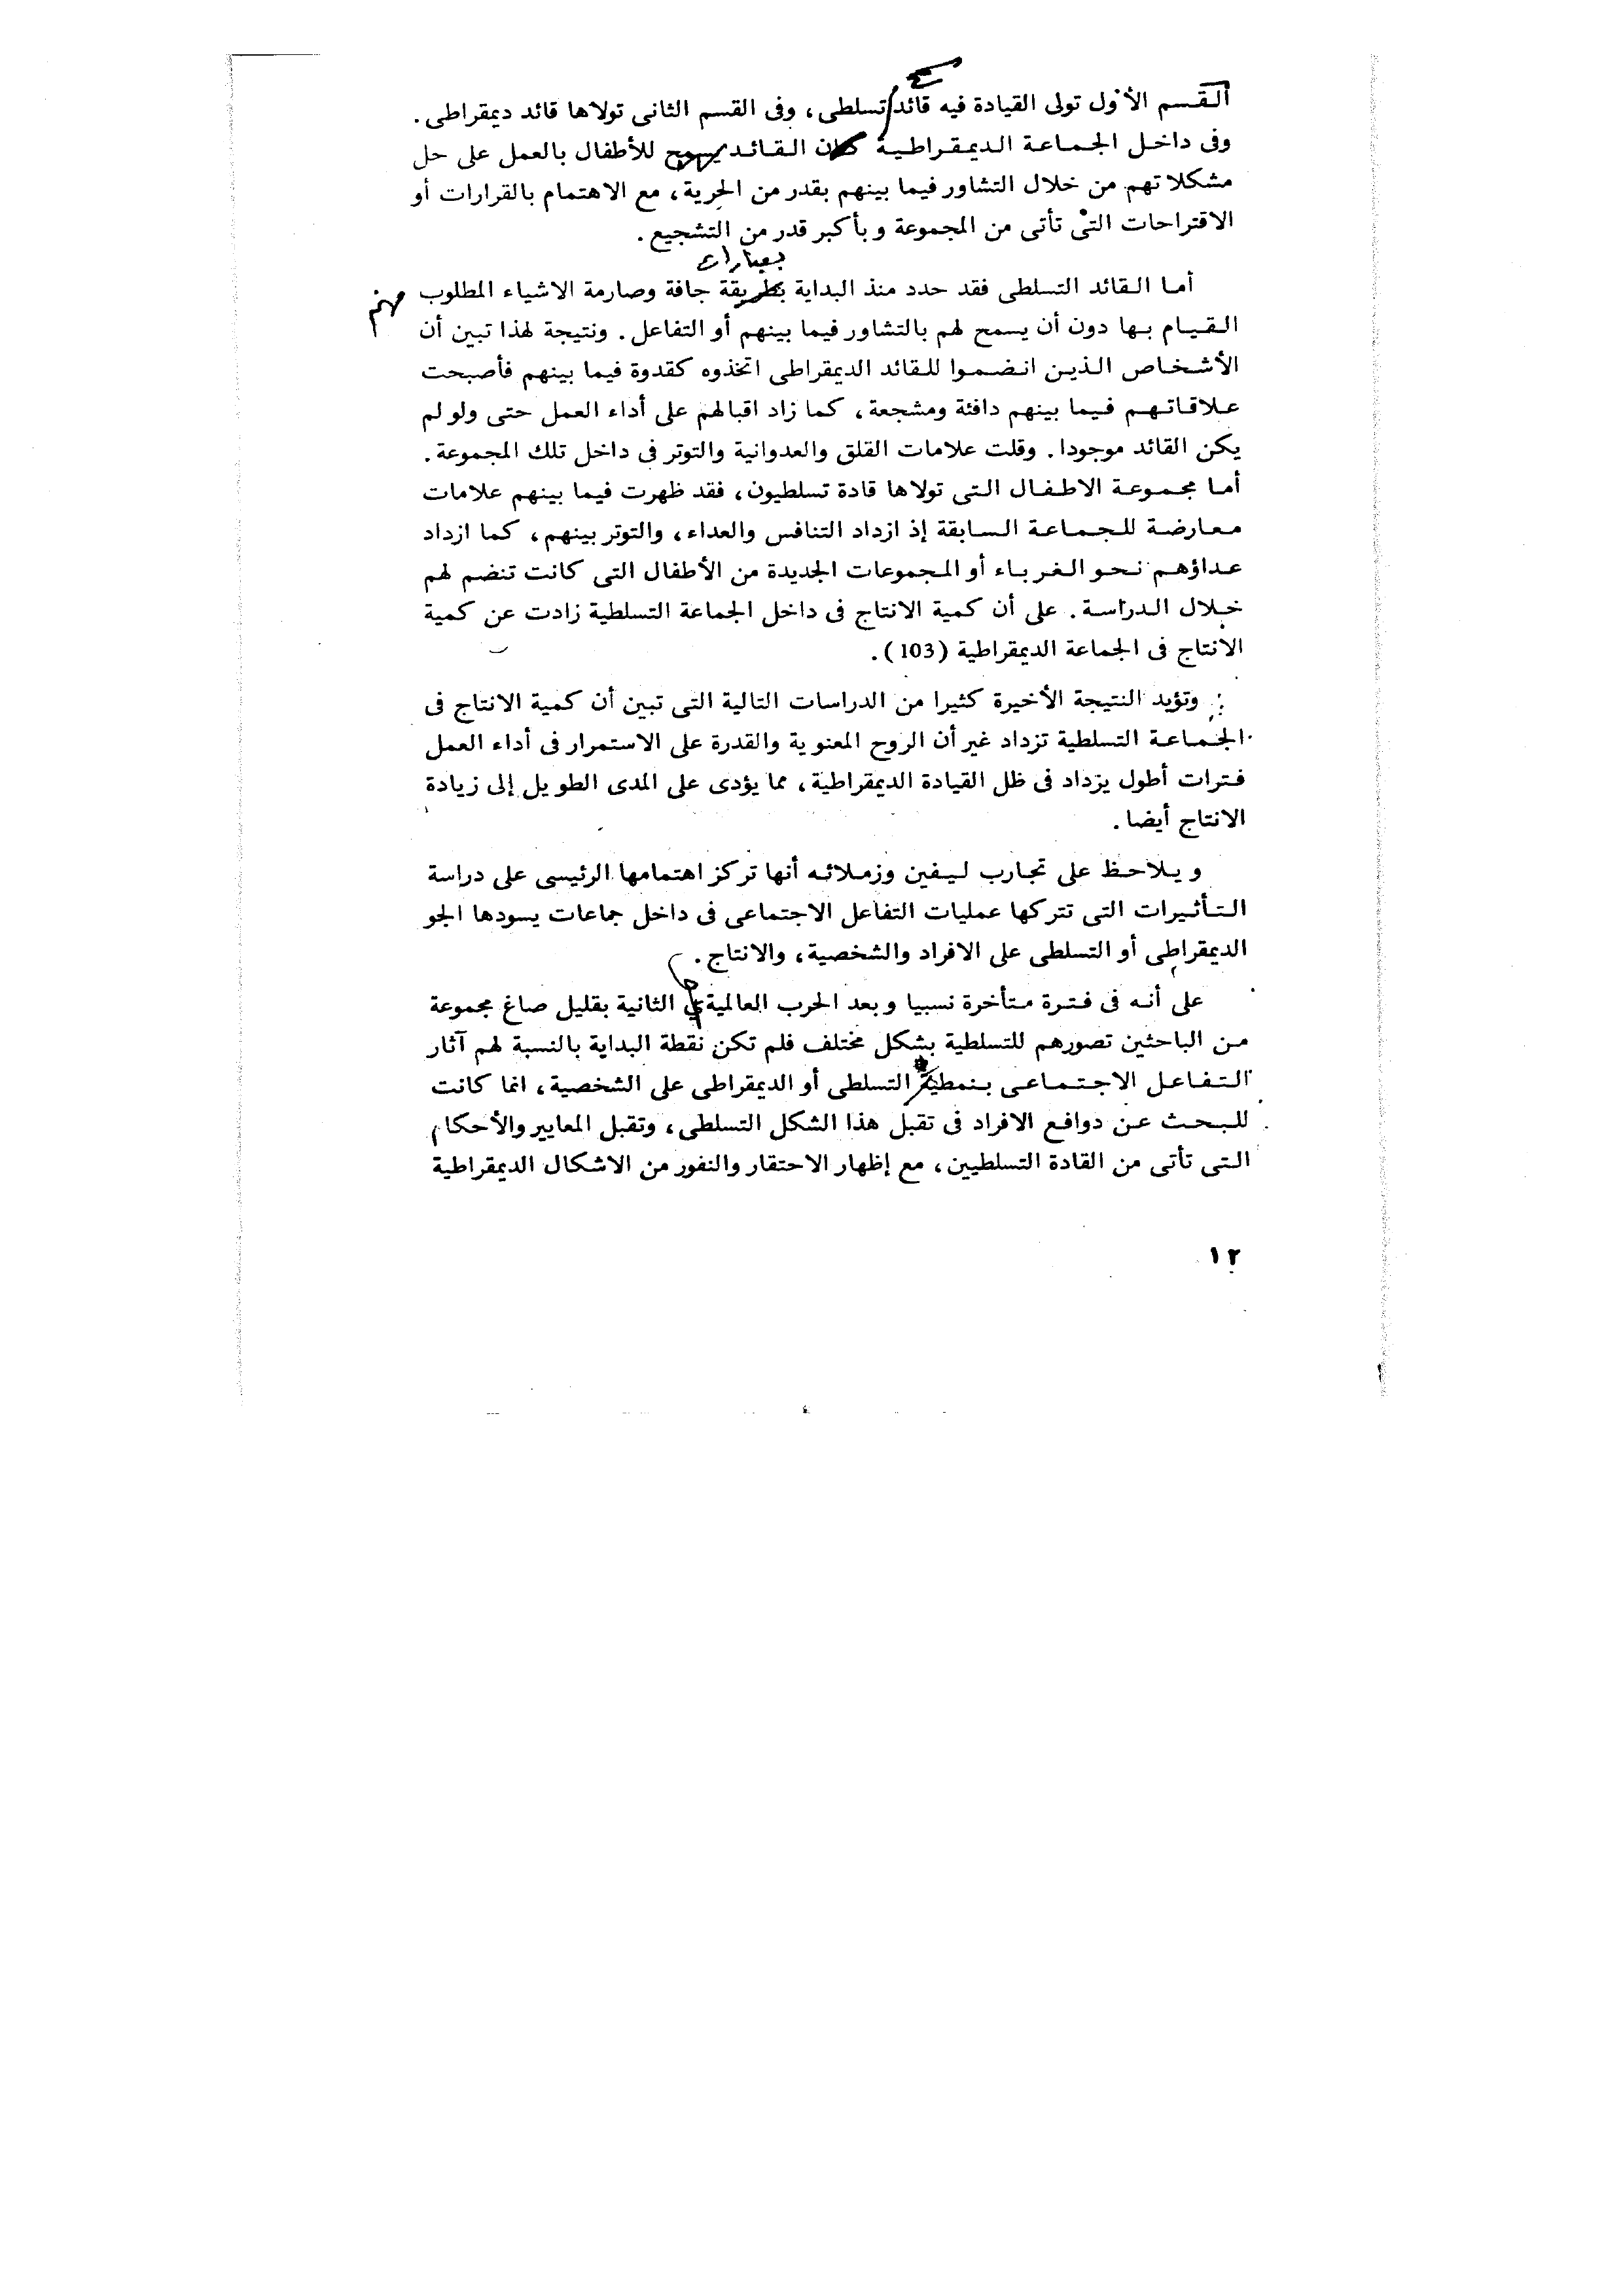 القسم الأول تولى القيادة فيه قائد تسلطى، وفى القسم الثانى تولاها قائد ديمقراطى.
وفى داخل الجماعة الديمقراطية كان القائد يسمح للأطفال بالعمل على حل
مشكلاتهم من خلال التشاور فيما بينهم بقدر من الحرية، مع الاهتمام بالقرارات أو
الاقتراحات التى تأتى من المجموعة وبأكبر قدر من التشجيع.
بعبارات
أما القائد التسلطى فقد حدد منذ البداية بطريقة جافة وصارمة الاشياء المطلوب منهم
القيام بها دون أن يسمح لهم بالتشاور فيما بينهم أو التفاعل. ونتيجة لهذا تبين أن
الأشخاص الذين انضموا للقائد الديمقراطى اتخذوه كقدوة فيما بينهم فأصبحت
علاقاتهم فيما بينهم دافئة ومشجعة، كما زاد اقبالهم على أداء العمل حتى ولو لم
يكن القائد موجودا. وقلت علامات القلق والعدوانية والتوتر فى داخل تلك المجموعة.
أما مجموعة الاطفال التى تولاها قادة تسلطيون، فقد ظهرت فيما بينهم علامات
معارضة للجماعة السابقة إذ ازداد التنافس والعداء، والتوتر بينهم، كما ازداد
عداؤهم نحو الغرباء أو المجموعات الجديدة من الأطفال التى كانت تنضم لهم
خلال الدراسة. على أن كمية الانتاج فى داخل الجماعة التسلطية زادت عن كمية
الانتاج فى الجماعة الديمقراطية (103).
وتؤيد النتيجة الأخيرة كثيرا من الدراسات التالية التى تبين أن كمية الانتاج فى
الجماعة التسلطية تزداد غير أن الروح المعنوية والقدرة على الاستمرار فى أداء العمل
فترات أطول يزداد فى ظل القيادة الديمقراطية، مما يؤدى على المدى الطويل إلى زيادة
الانتاج أيضا.
ويلاحظ على تجارب ليفين وزملائه أنها تركز اهتمامها الرئيسى على دراسة
التأثيرات التى تتركها عمليات التفاعل الاجتماعى فى داخل جماعات يسودها الجو
الديمقراطى أو التسلطى على الافراد والشخصية، والانتاج.
على أنه فى فترة متأخرة نسبيا وبعد الحرب العالمية الثانية بقليل صاغ مجموعة
من الباحثين تصورهم للتسلطية بشكل مختلف فلم تكن نقطة البداية بالنسبة لهم آثار
التفاعل الاجتماعى بنمطية التسلطى أو الديمقراطى على الشخصية، انما كانت
للبحث عن دوافع الافراد فى تقبل هذا الشكل التسلطى، وتقبل المعايير والأحكام
التى تأتى من القادة التسلطيين، مع إظهار الاحتقار والنفور من الاشكال الديمقراطية
١٢